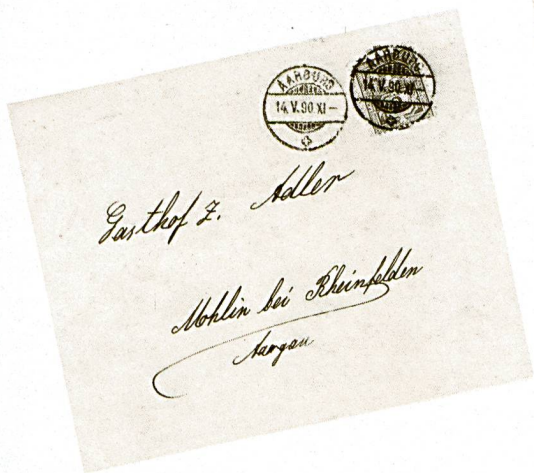 AARBURG
14.V.90 XI–
AARBURG
14.V.90 XI–
Gasthof z. Adler
Mohlin bei Rheinfelden
Aargau